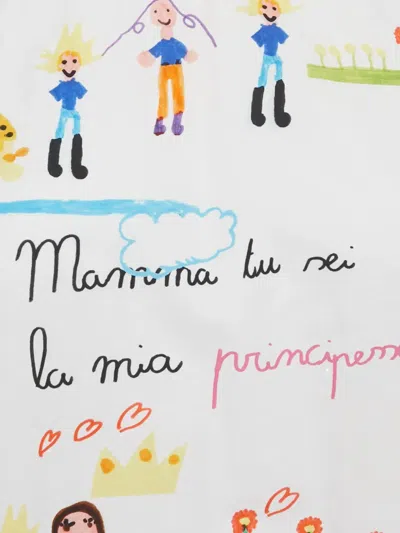 Mamma tu sei
la mia principess